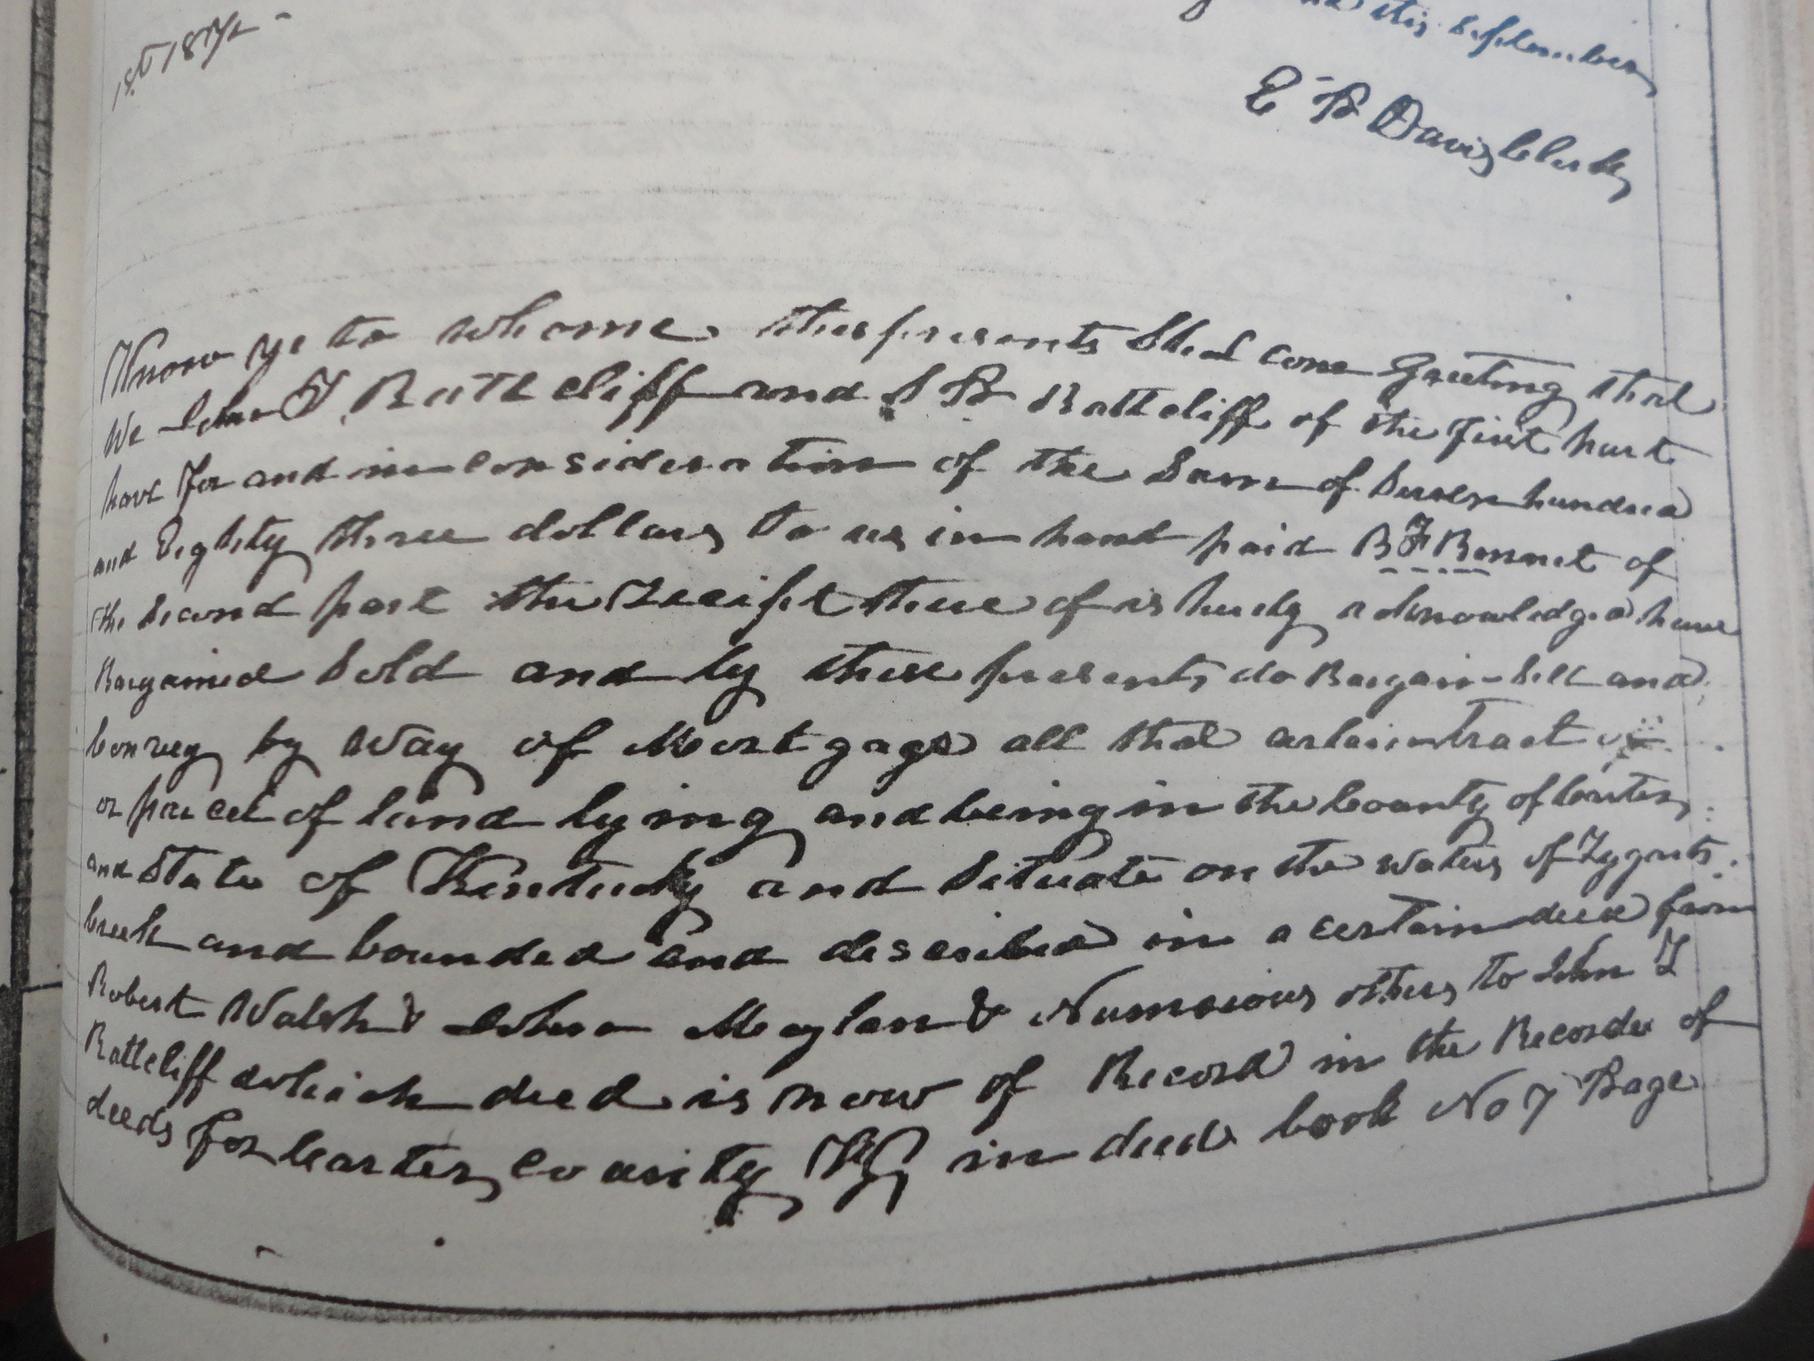 this September
1st 1872 -
E B Davis Clerk
Know ye to whome these presents Shal come Greeting that
We John T Rattcliff and S B Rattcliff of the First part
have For and in consideration of the Sum of Seven hundred
and Eighty three dollars to us in hand paid B F Bennet of
the Second part the Receipt there of is hereby acknowledged have
Bargained Sold and by these presents do Bargain Sell and
Convey by Way of Mortgage all that certain tract
or parcel of land lying and being in the County of Carter
and State of Kentucky and Situate on the waters of Tygarts
Creek and bounded and described in a certain deed from
Robert Walsh & John Moylan & Numerious others to John T
Rattcliff which deed is now of Record in the Recorder of
deeds for Carter county Ky in deed book No 7 Page